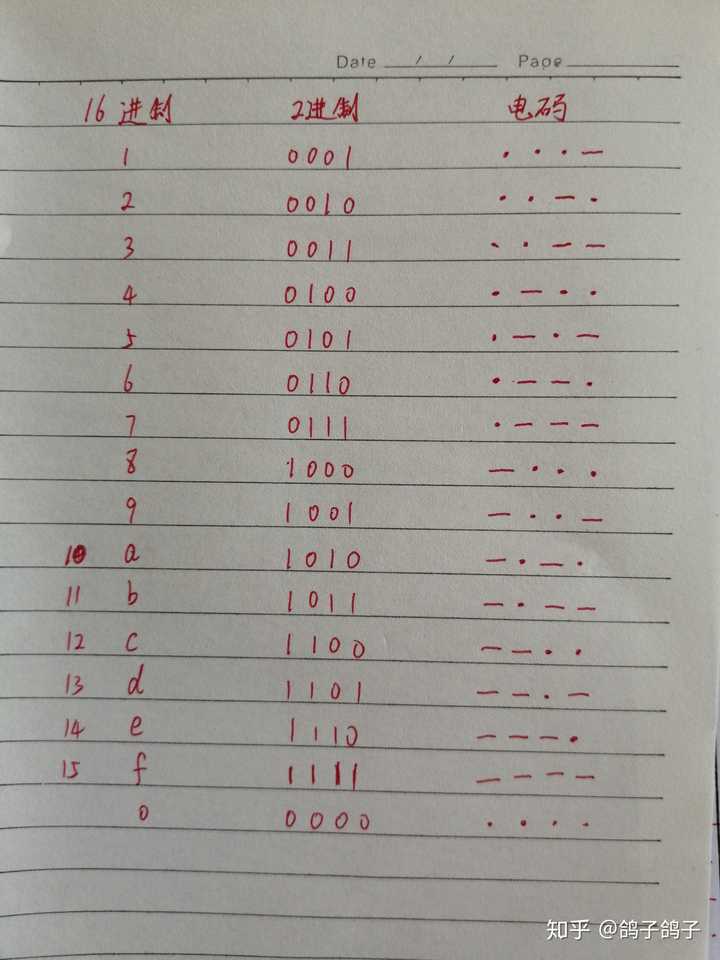 Date / / Page
16进制 2进制 电码
1 0001 ···—
2 0010 ··—·
3 0011 ··——
4 0100 ·—··
5 0101 ·—·—
6 0110 ·——·
7 0111 ·———
8 1000 —···
9 1001 —··—
10 a 1010 —·—·
11 b 1011 —·——
12 c 1100 ——··
13 d 1101 ——·—
14 e 1110 ———·
15 f 1111 ————
0 0000 ····
知乎 @鸽子鸽子